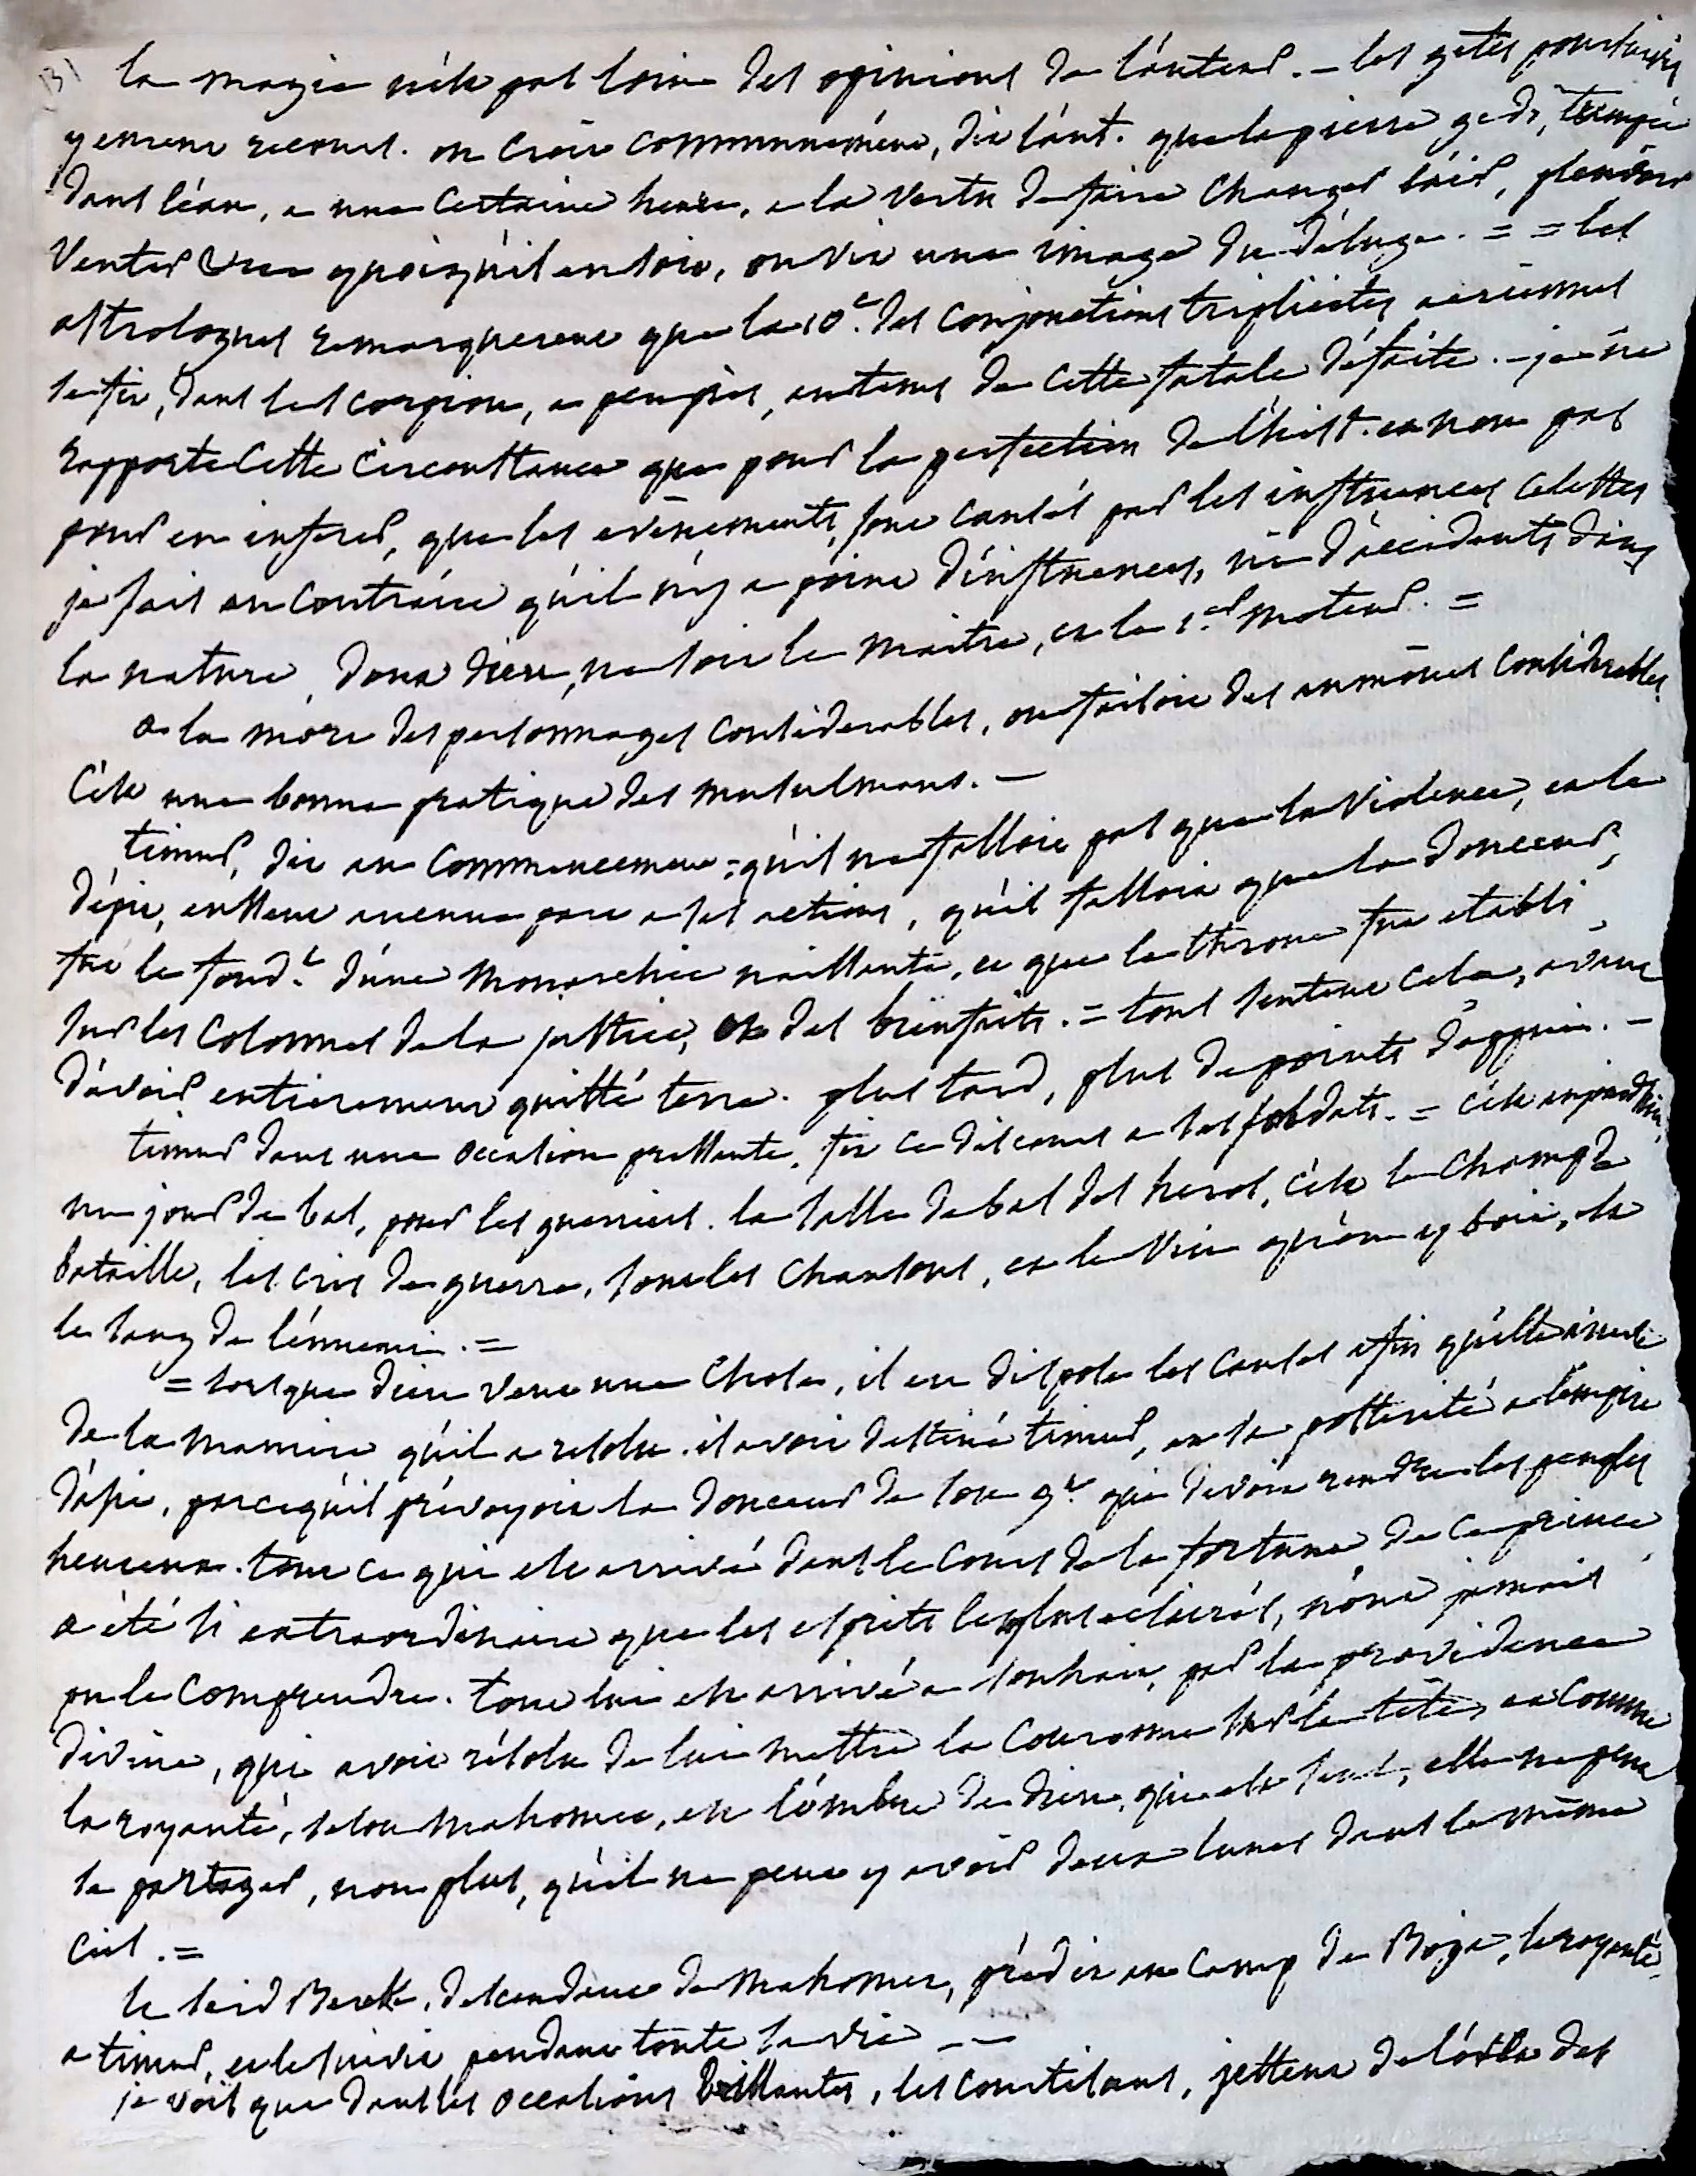 131
la magie n'est pas loin des opinions de l'auteur. – les getes poursuivis
y eurent recours. on croit communnement, dit l'aut. que la pierre gedi, trempée
dans l'eau, a une certaine heure, a la vertu de faire changer l'air, pleuvoir
venter &c quoiqu'il en soit, on vit une image du déluge. = = les
astrologues remarquerent que la 10e. des conjonctions triplicités aeriennes
se fit, dans le scorpion, a peu près, au tems de cette fatale défaite. – je ne
rapporte cette circonstance que pour la perfection de l'hist. et non pas
pour en inferer, que les evénements, sont causés par les influences celestes
je sais au contraire qu'il n'y a point d'influences, ni d'accidents dans
la nature, dont dieu, ne soit le maitre, et le 1.er moteur. =
a la mort des personnages considerables, on faisoit des aumônes considerables.
C'est une bonne pratique des musulmans. –
timur, dit au commencement, qu'il ne falloit pas que la violence, et le
dépit, eussent aucune part a ses actions, qu'il falloit que la douceur,
fut le fond.t d'une monarchie naissante, et que le throne fut etabli
sur les colonnes de la justice, et des bienfaits. = tous sentent cela, avant
d'avoir entierement quitté terre. plus tard, plus de points d'appui. –
timur dans une occasion pressante, fit ce discours a ses soldats. = c'est aujourd'hui,
un jour de bal, pour les guerriers. la salle de bal des heros, c'est le champ de
bataille, les cris de guerre, sont les chansons, et le vin qu'on y boit, est
le sang de l'ennemi. =
= lorsque dieu veut une chose, il en dispose les causes afin qu'elle arrive
de la maniere qu'il a resolu. il avoit destiné timur, et sa posterité a l'empire
d'asie, parcequ'il prévoyoit la douceur de son g.t qui devoit rendre les peuples
heureux. tout ce qui est arrivé dans le cours de la fortune de ce prince
a été si extraordinaire que les esprits les plus eclairés, n'ont jamais
pu le comprendre. tout lui est arrivé a souhait, par la providence
divine, qui avoit résolu de lui mettre la couronne sur la tête, et comme
la royauté, selon mahomet, est l'ombre de dieu, qui est seul, elle ne peut
se partager, non plus, qu'il ne peut y avoir deux lunes dans le même
ciel. =
le seid Bereke, descendant de mahomet, prédit au camp de Boga, la royauté
a timur, et le suivit pendant toute sa vie – –
je vois que dans les occasions brillantes, les courtisans, jettent de l'or et des